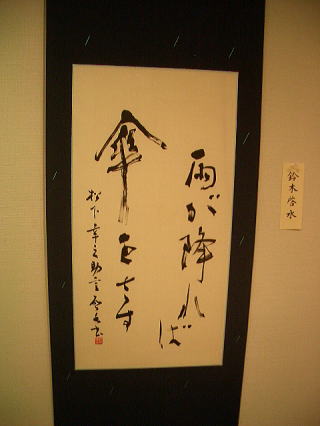 雨が降れば
傘をさす
松下幸之助言
鈴木啓水